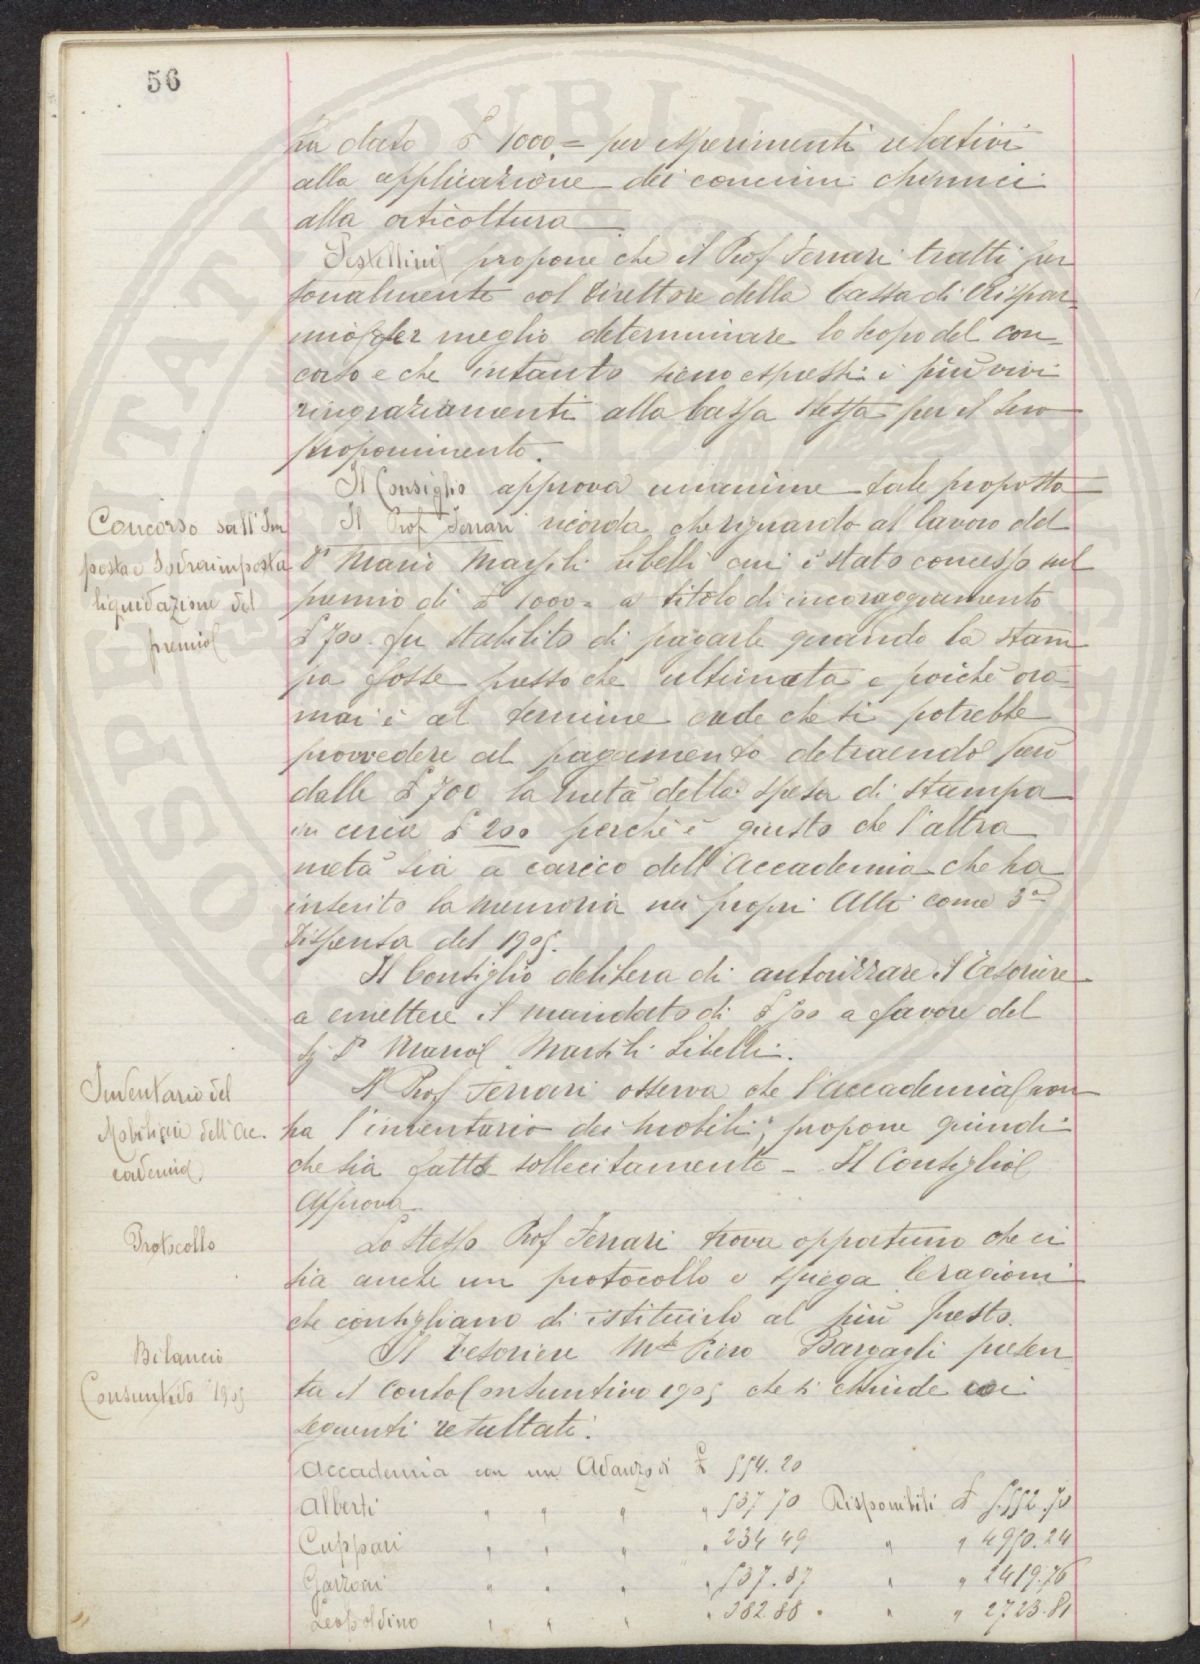 56
ha dato £ 1000 = per esperimenti relativi
alla applicazione dei concimi chimici
alla orticoltura
Pestellini propone che il Prof Ferrari tratti per
sonalmente col Direttore della Cassa di Rispar=
mio per meglio determinare lo scopo del con=
corso e che intanto sieno espressi i più vivi
ringraziamenti alla Cassa stessa per il suo
proponimento.
Il Consiglio approva unanime tale proposta
Concorso sull'Im
posta e Sovrimposta
liquidazione del
premio
Il Prof Ferrari ricorda che riguardo al lavoro del
Dr Mario Marsili Libelli cui è stato concesso sul
premio di £ 1000 = a titolo di incoraggiamento
£ 700. fu stabilito di pagarle quando la stam
pa fosse presso che ultimata e poichè ora
mai è al termine crede che si potrebbe
provvedere al pagamento detraendo però
dalle £ 700 la metà della spesa di stampa
in circa £ 200 perchè è giusto che l'altra
metà sia a carico dell'Accademia che ha
inserito la memoria nei propri Atti come 3a
Dispensa del 1905.
Il Consiglio delibera di autorizzare il Tesoriere
a emettere il mandato di £ 500 a favore del
Sig Dr Mario Marsili Libelli.
Inventario del
Mobiliare dell'Ac.
cademia
Il Prof Ferrari osserva che l'Accademia non
ha l'inventario dei mobili; propone quindi
che sia fatto sollecitamente - Il Consiglio
approva
Protocollo
Lo stesso Prof Ferrari trova opportuno che ci
sia anche un protocollo e spiega le ragioni
che consigliano di istituirlo al più presto.
Bilancio
Consuntivo 1905
Il Tesoriere Mse Piero Bargagli presen
ta il Conto Consuntivo 1905 che si chiude coi
seguenti resultati:
Accademia con un Avanzo di £ 554.20
Alberti " " " " 537 70 Disponibili £ 5.552.70
Cuppari " " " " 234 49 " " 4950.24
Garzoni " " " " 537.87 " " 2419.76
Leopoldino " " " " 382.88 " " 2723.81
SOSPITATI PUBLICAE